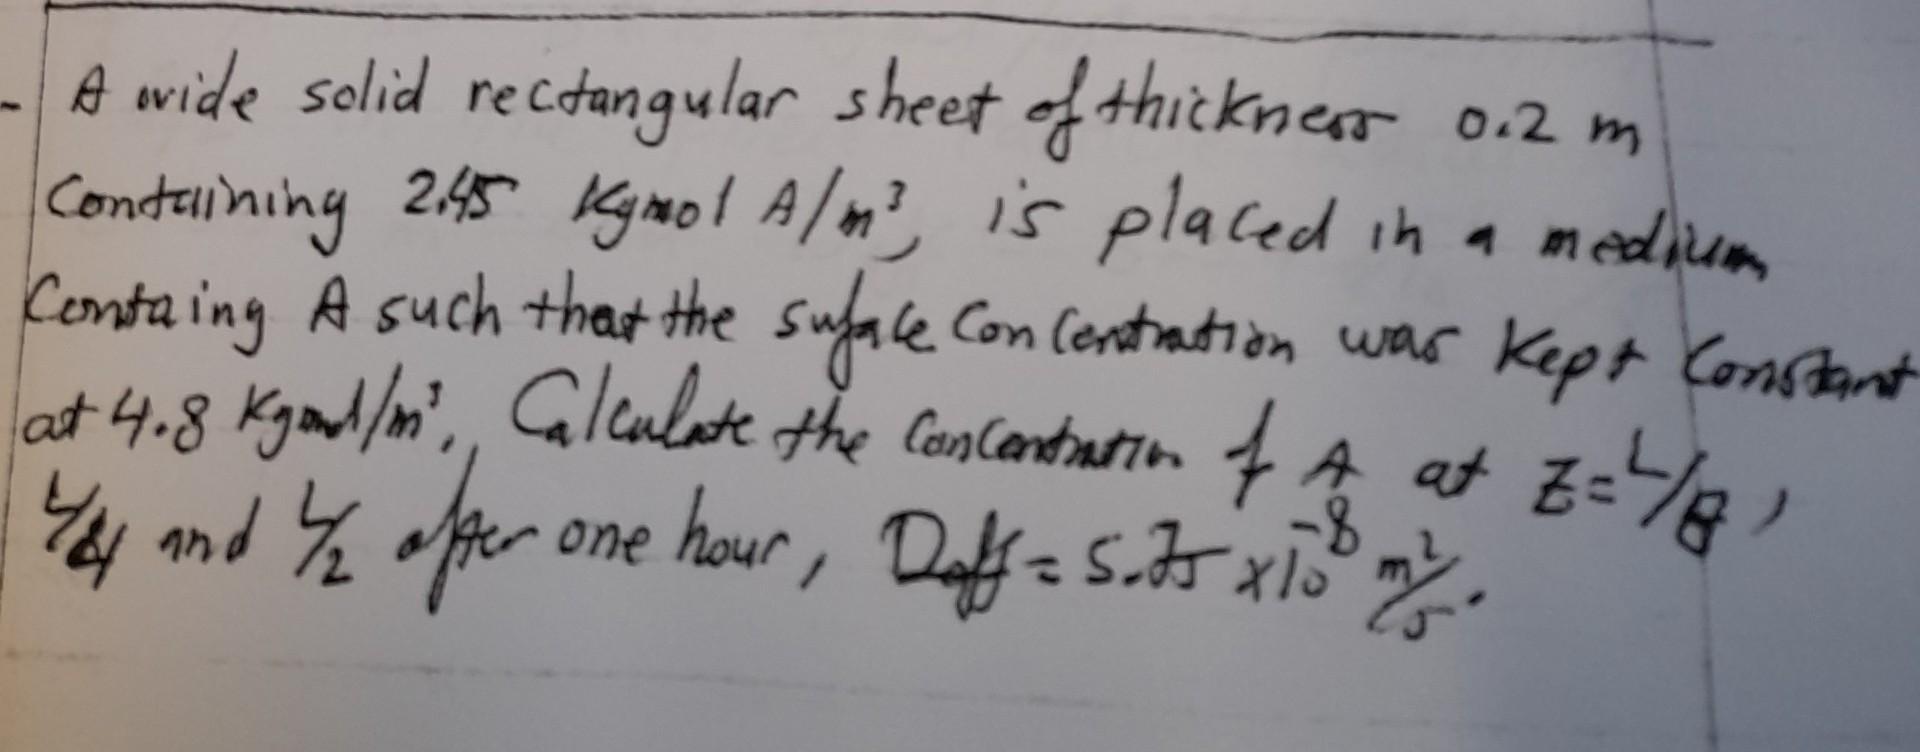 - A wide solid rectangular sheet of thickness 0.2 m
Containing 2.45 Kgmol A/m³, is placed in a medium
Containg A such that the surface Concentration was Kept Constant
at 4.8 Kgmol/m³, Calculate the Concentration of A at Z=L/8,
L/4 and L/2 after one hour, Deff = 5.75 x10⁻⁸ m²/s.